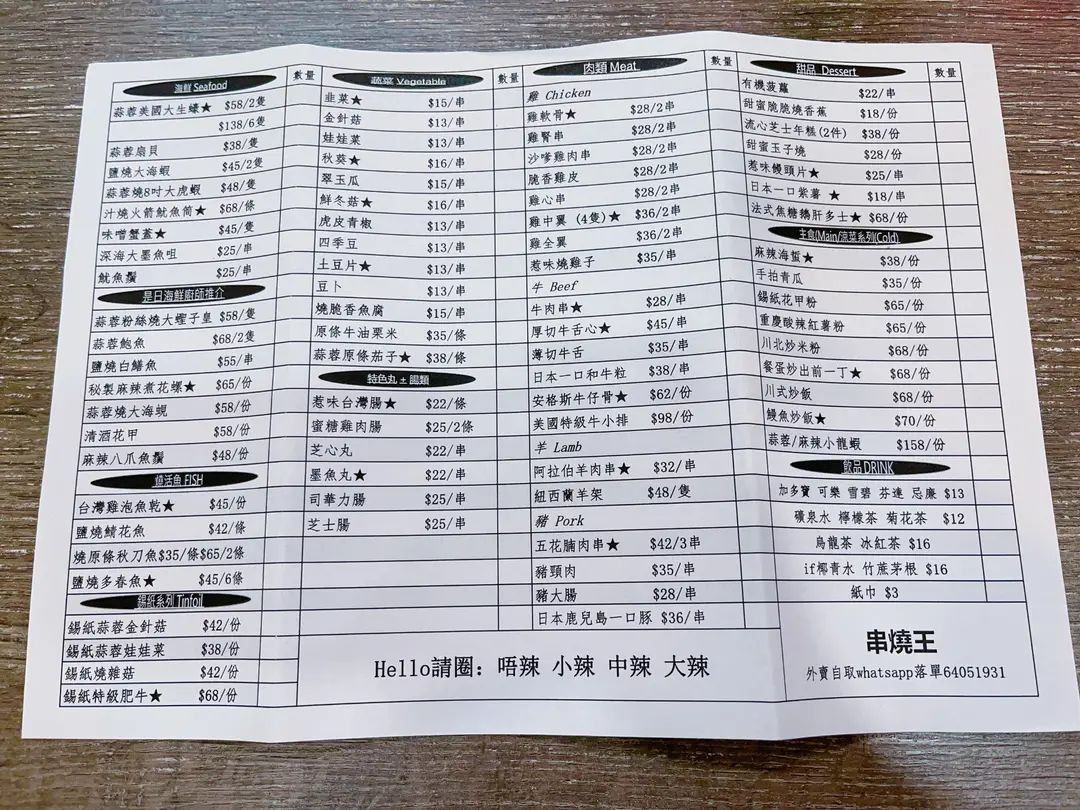 海鮮 Seafood 數量
蒜蓉美國大生蠔★ $58/2隻
$138/6隻
蒜蓉扇貝 $38/隻
鹽燒大海蝦 $45/2隻
蒜蓉燒8吋大虎蝦 $48/隻
汁燒火箭魷魚筒★ $68/條
味噌蟹蓋★ $45/隻
深海大墨魚咀 $25/串
魷魚鬚 $25/串
是日海鮮廚師推介
蒜蓉粉絲燒大蟶子皇 $58/隻
蒜蓉鮑魚 $68/2隻
鹽燒白鱔魚 $55/串
秘製麻辣煮花螺★ $65/份
蒜蓉燒大海蜆 $58/份
清酒花甲 $58/份
麻辣八爪魚鬚 $48/份
燒活魚 FISH
台灣雞泡魚乾★ $45/份
鹽燒鯖花魚 $42/條
燒原條秋刀魚$35/條$65/2條
鹽燒多春魚★ $45/6條
錫紙系列 Tinfoil
錫紙蒜蓉金針菇 $42/份
錫紙蒜蓉娃娃菜 $38/份
錫紙燒雜菇 $42/份
錫紙特級肥牛★ $68/份
蔬菜 Vegetable 數量
韭菜★ $15/串
金針菇 $13/串
娃娃菜 $13/串
秋葵★ $16/串
翠玉瓜 $15/串
鮮冬菇★ $16/串
虎皮青椒 $13/串
四季豆 $13/串
土豆片★ $13/串
豆卜 $13/串
燒脆香魚腐 $15/串
原條牛油粟米 $35/條
蒜蓉原條茄子★ $38/條
特色丸 ± 腸類
惹味台灣腸★ $22/條
蜜糖雞肉腸 $25/2條
芝心丸 $22/串
墨魚丸★ $22/串
司華力腸 $25/串
芝士腸 $25/串
肉類 Meat 數量
雞 Chicken
雞軟骨★ $28/2串
雞腎串 $28/2串
沙嗲雞肉串 $28/2串
脆香雞皮 $28/2串
雞心串 $28/2串
雞中翼 (4隻)★ $36/2串
雞全翼 $36/2串
惹味燒雞子 $35/串
牛 Beef
牛肉串★ $28/串
厚切牛舌心★ $45/串
薄切牛舌 $35/串
日本一口和牛粒 $38/串
安格斯牛仔骨★ $62/份
美國特級牛小排 $98/份
羊 Lamb
阿拉伯羊肉串★ $32/串
紐西蘭羊架 $48/隻
豬 Pork
五花腩肉串★ $42/3串
豬頸肉 $35/串
豬大腸 $28/串
日本鹿兒島一口豚 $36/串
甜品 Dessert 數量
有機菠蘿 $22/串
甜蜜脆脆燒香蕉 $18/份
流心芝士年糕(2件) $38/份
甜蜜玉子燒 $28/份
惹味饅頭片★ $25/串
日本一口紫薯 ★ $18/串
法式焦糖鵝肝多士★ $68/份
主食(Main/涼菜系列(Cold)
麻辣海蜇★ $38/份
手拍青瓜 $35/份
錫紙花甲粉 $65/份
重慶酸辣紅薯粉 $65/份
川北炒米粉 $68/份
餐蛋炒出前一丁★ $68/份
川式炒飯 $68/份
鰻魚炒飯★ $70/份
蒜蓉/麻辣小龍蝦 $158/份
飲品 DRINK
加多寶 可樂 雪碧 芬達 忌廉 $13
礦泉水 檸檬茶 菊花茶 $12
烏龍茶 冰紅茶 $16
if椰青水 竹蔗茅根 $16
紙巾 $3
Hello請圈: 唔辣 小辣 中辣 大辣
串燒王
外賣自取whatsapp落單64051931